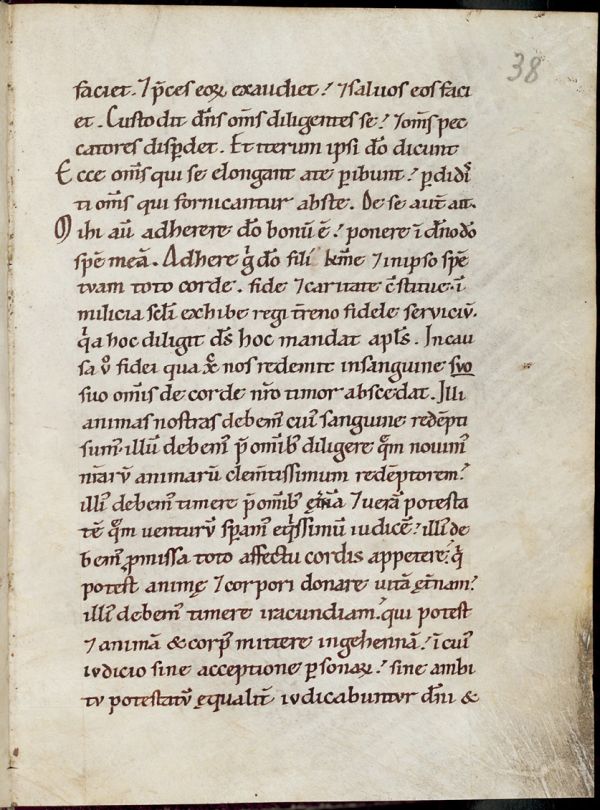 38
faciet. ⁊ p̄ces eoꝝ exaudiet! ⁊ saluos eos faci
et. Custodit dn̄s om̄s diligentes se! ⁊ om̄s pec
catores disp̱det. Et iterum ipsi do᷒ dicunt
Ecce om̄s qui se elongant a te ꝑibunt! ꝑdidis᷒
ti om̄s qui fornicantur abs te. De se aut̄ ait.
Mihi au᷒ adherere do᷒ bonū ē! ponere ī dn̄o do᷒
spē meā. Adhere g̊ do᷒ fili kme ⁊ in ipso spē
tuam toto corde. fide ⁊ caritate c̄stitue. ī
milicia sc̄li exhibe regi t̄reno fidele serviciū.
qa hoc diligit ds̄ hoc mandat apl̄s. In cau
sa u᷒ fidei qua xp̄c nos redemit in sanguine suo
suo om̄is de corde nr̄o timor abscedat. Illi
animas nostras debem᷒ cui᷒ sanguine redēpti
sum᷒. illū debem᷒ p̄ omīb᷒ diligere qm̄ novim᷒
nr̄arū animarū clem̄tissimum redēptorem!
illi᷒ debem᷒ timere p̄ omīb᷒ ęt̄na ⁊ uerā potesta
tē qm̄ venturū sꝑam᷒ eq̄ssimū iudicē! illi᷒ de
bem᷒ ꝓmissa toto affectu cordis appetere! q̄
potest animę ⁊ corpori donare uitā ęt̄nam!
illi᷒ debem᷒ timere iracundiam! qui potest
⁊ animā & corp᷒ mittere in gehennā! ī cui᷒
iudicio sine acceptione ꝑsonaꝝ! sine ambi
tu potestatū ęqualit̄ iudicabuntur dn̄i &